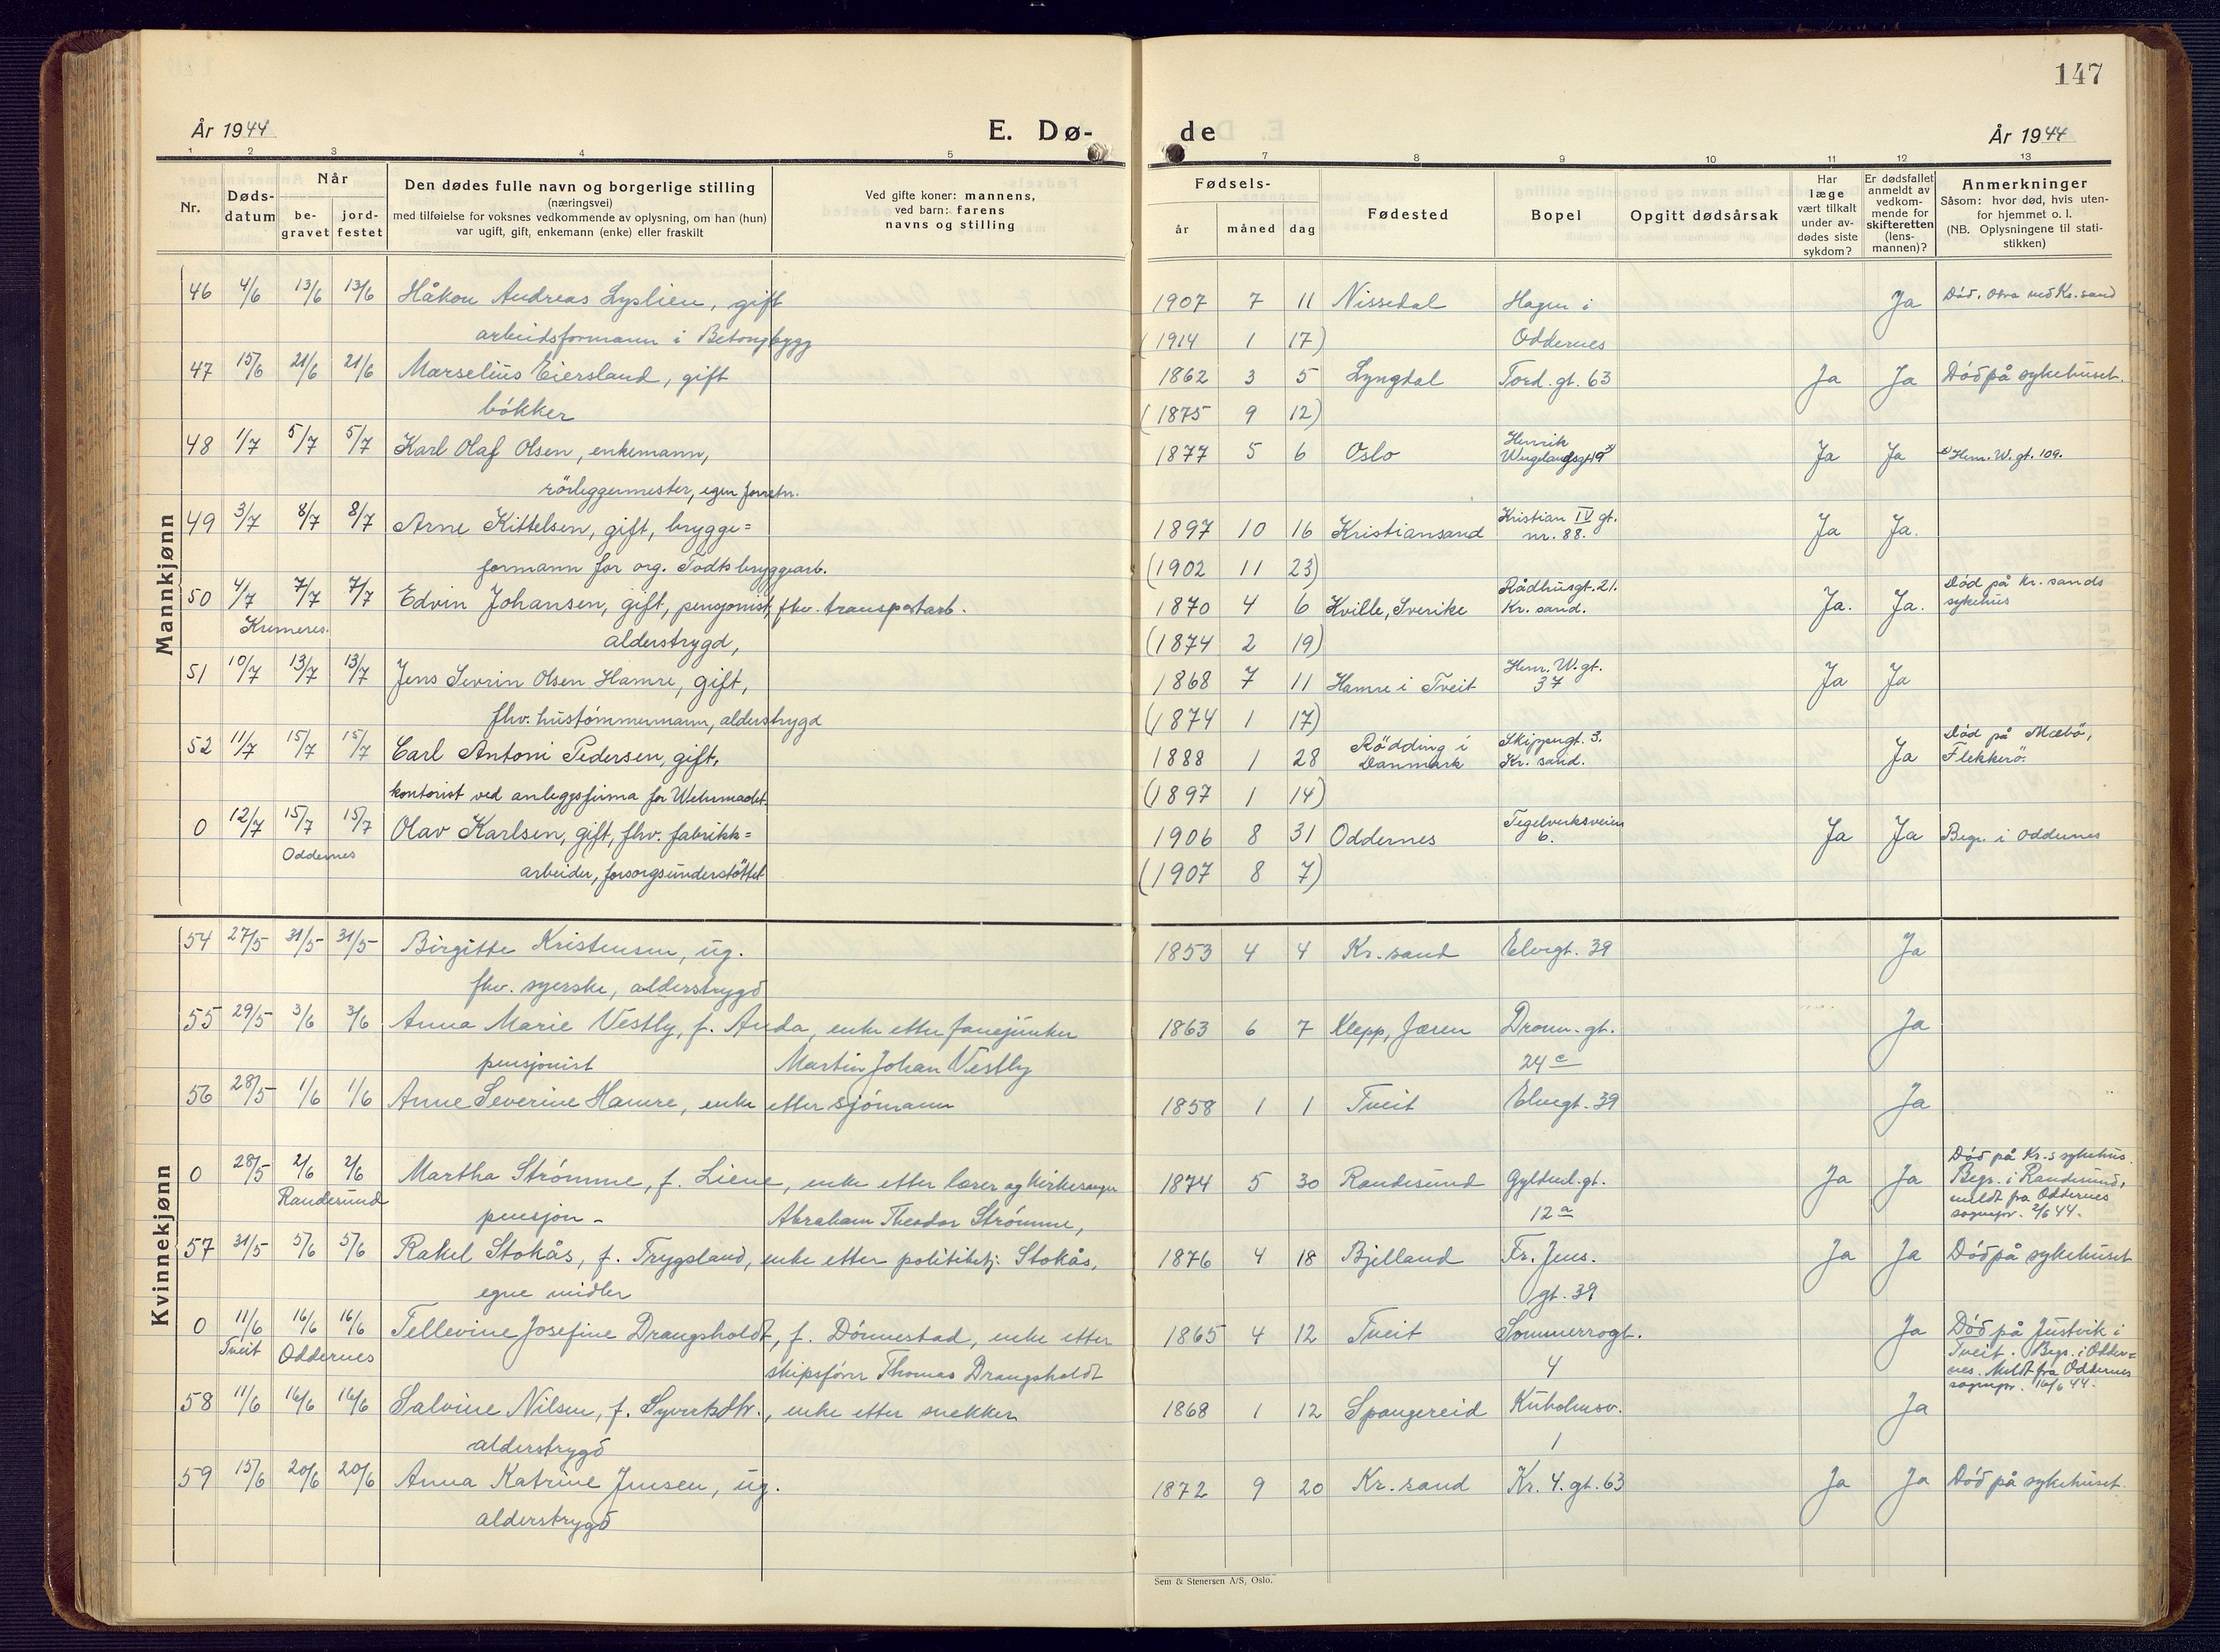 147
År 1944 E. Dø- de År 1944
1 2 3 4 5 7 8 9 10 11 12 13
Nr.
Døds-
datum
Når
be-
gravet
jord-
festet
Den dødes fulle navn og borgerlige stilling
(næringsvei)
med tilføielse for voksnes vedkommende av oplysning, om han (hun)
var ugift, gift, enkemann (enke) eller fraskilt
Ved gifte koner: mannens,
ved barn: farens
navns og stilling
Fødsels-
år måned dag
Fødested
Bopel
Opgitt dødsårsak
Har
læge
vært tilkalt
under av-
dødes siste
sykdom?
Er dødsfallet
anmeldt av
vedkom-
mende for
skifteretten
(lens-
mannen)?
Anmerkninger
Såsom: hvor død, hvis uten-
for hjemmet o. l.
(NB. Oplysningene til stati-
stikken)
Mannkjønn
46 4/6 13/6 13/6 Håkon Andreas Lyslien, gift 1907 7 11 Nissedal Hagen i Ja Død. ved Kr.sand
arbeidsformann i Betongbygg (1914 1 17) Oddernes
47 15/6 21/6 21/6 Marselius Eiersland, gift 1862 3 5 Lyngdal Tord. gt. 63 Ja Ja Død på sykehuset.
bøkker (1875 9 12)
48 1/7 5/7 5/7 Karl Olaf Olsen, enkemann, 1877 5 6 Oslo Henrik Wergelandsgt. Ja Ja x) Henr. W. gt. 109.
rørleggermester, egen forretn.
49 3/7 8/7 8/7 Arne Kittelsen, gift, brygge= 1897 10 16 Kristiansand Kristian IV gt. nr. 88. Ja Ja.
formann for org. Todts bryggearb. (1902 11 23)
50 4/7 7/7 7/7 Edvin Johansen, gift, pensjonist, fhv. transportarb. 1870 4 6 Kville, Sverike Rådhusgt. 21. Kr. sand. Ja. Ja. Død på Kr. sands sykehus
Kremeres. alderstrygd, (1874 2 19)
51 10/7 13/7 13/7 Jens Sevrin Olsen Hamre, gift, 1868 7 11 Hamre i Tveit Henr. W. gt. 37 Ja Ja
fhv. hustømmermann, alderstrygd (1874 1 17)
52 11/7 15/7 15/7 Carl Antoni Pedersen, gift, 1888 1 28 Rødding i Danmark Skippergt. 3. Kr. sand. Ja Død på Mæbø, Flekkerø.
kontorist ved anleggsfirma for Wehrmacht. (1897 1 14)
0 12/7 15/7 15/7 Olav Karlsen, gift, fhv. fabrikk= 1906 8 31 Oddernes Tegelverksveien 6. Ja Ja Begr. i Oddernes
Oddernes arbeider, forsorgsunderstøttet (1907 8 7)
Kvinnekjønn
54 27/5 31/5 31/5 Birgitte Kristensen, ug. 1853 4 4 Kr. sand Elvegt. 39 Ja
fhv. syerske, alderstrygd
55 29/5 3/6 3/6 Anna Marie Vestly, f. Anda, enke etter fanejunker 1863 6 7 Klepp, Jæren Dronn. gt. Ja
pensjonist Martin Johan Vestly 24 c
56 28/5 1/6 1/6 Anne Severine Hamre, enke etter sjømann 1858 1 1 Tveit Elvegt. 39 Ja
0 28/5 2/6 2/6 Martha Strømme, f. Liene, enke etter lærer og kirkesanger 1874 5 30 Randesund Gyldenl. gt. Ja Ja Død på Kr.s sykehus. Begr. i Randesund,
Randesund pensjon - Abraham Theodor Strømme, 12 a meldt fra Oddernes sognepr. 2/6 44.
57 31/5 5/6 5/6 Rakel Stokås, f. Trygsland, enke etter politibetj. Stokås, 1876 4 18 Bjelland Fr. Jens. Ja Ja Død på sykehuset
egne midler gt. 39
0 11/6 16/6 16/6 Tellevine Josefine Drangsholdt, f. Dønnestad, enke etter 1865 4 12 Tveit Sommerrogt. Ja Død på Justvik i
Tveit Oddernes skipsfører Thomas Drangsholdt 4 Tveit. Begr. i Odder=
nes. Meldt fra Oddernes
sognepr. 16/6 44.
58 11/6 16/6 16/6 Salvine Nilsen, f. Syvertsdtr., enke etter snekker 1868 1 12 Spangereid Kuholmsv. Ja
alderstrygd 1
59 15/6 20/6 20/6 Anna Katrine Jensen, ug. 1872 9 20 Kr. sand Kr. 4. gt. 63 Ja Ja Død på sykehuset.
alderstrygd
Sem & Stenersen A/S, Oslo.